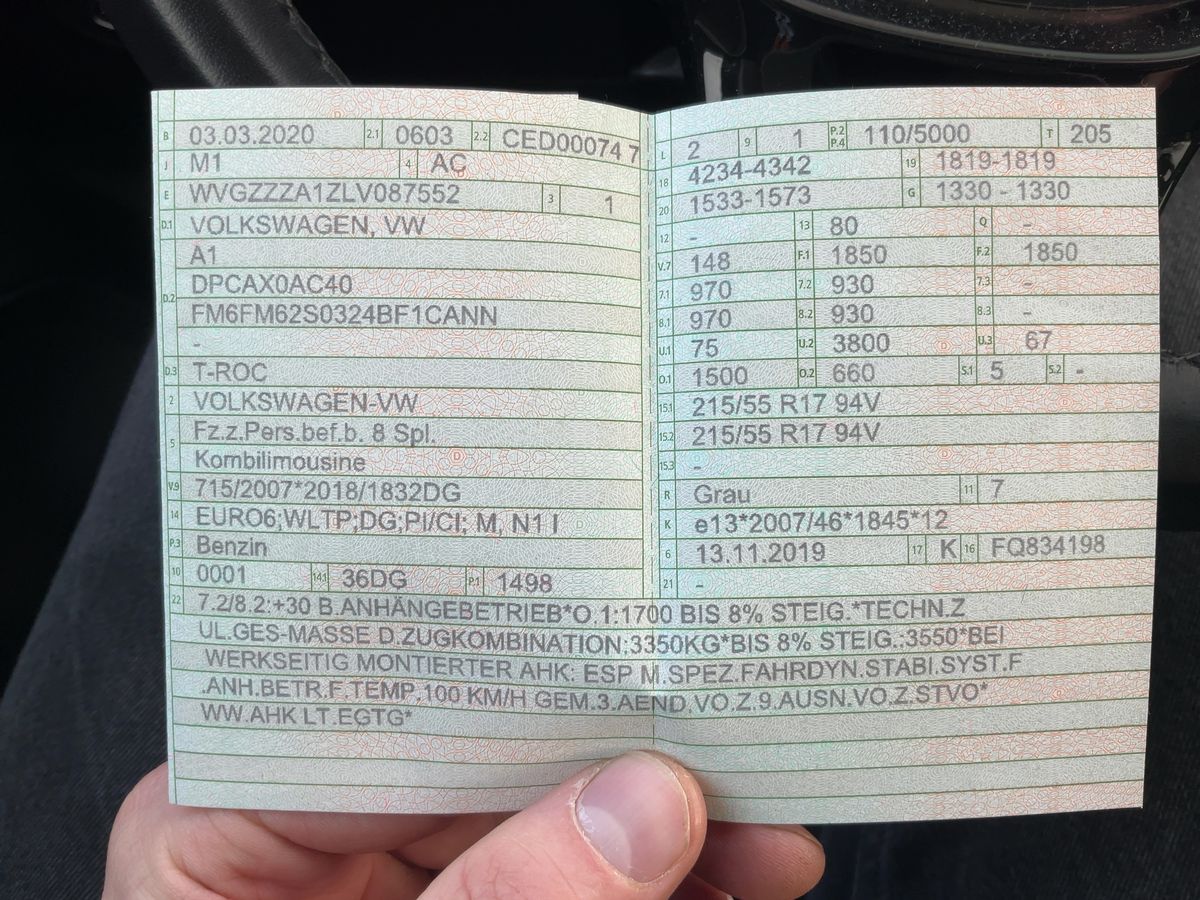 B 03.03.2020 2.1 0603 2.2 CED00074 7
J M1 4 AC
E WVGZZZA1ZLV087552 3 1
D.1 VOLKSWAGEN, VW
A1
D.2 DPCAX0AC40
FM6FM62S0324BF1CANN
-
D.3 T-ROC
2 VOLKSWAGEN-VW
5 Fz.z.Pers.bef.b. 8 Spl.
Kombilimousine
V.9 715/2007*2018/1832DG
14 EURO6;WLTP;DG;PI/CI; M, N1 I
P.3 Benzin
10 0001 14.1 36DG P.1 1498
L 2 9 1 P.2 P.4 110/5000 T 205
18 4234-4342 19 1819-1819
20 1533-1573 G 1330 - 1330
12 - 13 80 Q -
V.7 148 F.1 1850 F.2 1850
7.1 970 7.2 930 7.3 -
8.1 970 8.2 930 8.3 -
U.1 75 U.2 3800 U.3 67
O.1 1500 O.2 660 S.1 5 S.2 -
15.1 215/55 R17 94V
15.2 215/55 R17 94V
15.3 -
R Grau 11 7
K e13*2007/46*1845*12
6 13.11.2019 17 K 16 FQ834198
21 -
22 7.2/8.2:+30 B.ANHÄNGEBETRIEB*O.1:1700 BIS 8% STEIG.*TECHN.Z
UL.GES-MASSE D.ZUGKOMBINATION:3350KG*BIS 8% STEIG.:3550*BEI
WERKSEITIG MONTIERTER AHK: ESP M.SPEZ.FAHRDYN.STABI.SYST.F
.ANH.BETR.F.TEMP.100 KM/H GEM.3.AEND.VO.Z.9.AUSN.VO.Z.STVO*
WW.AHK LT.EGTG*